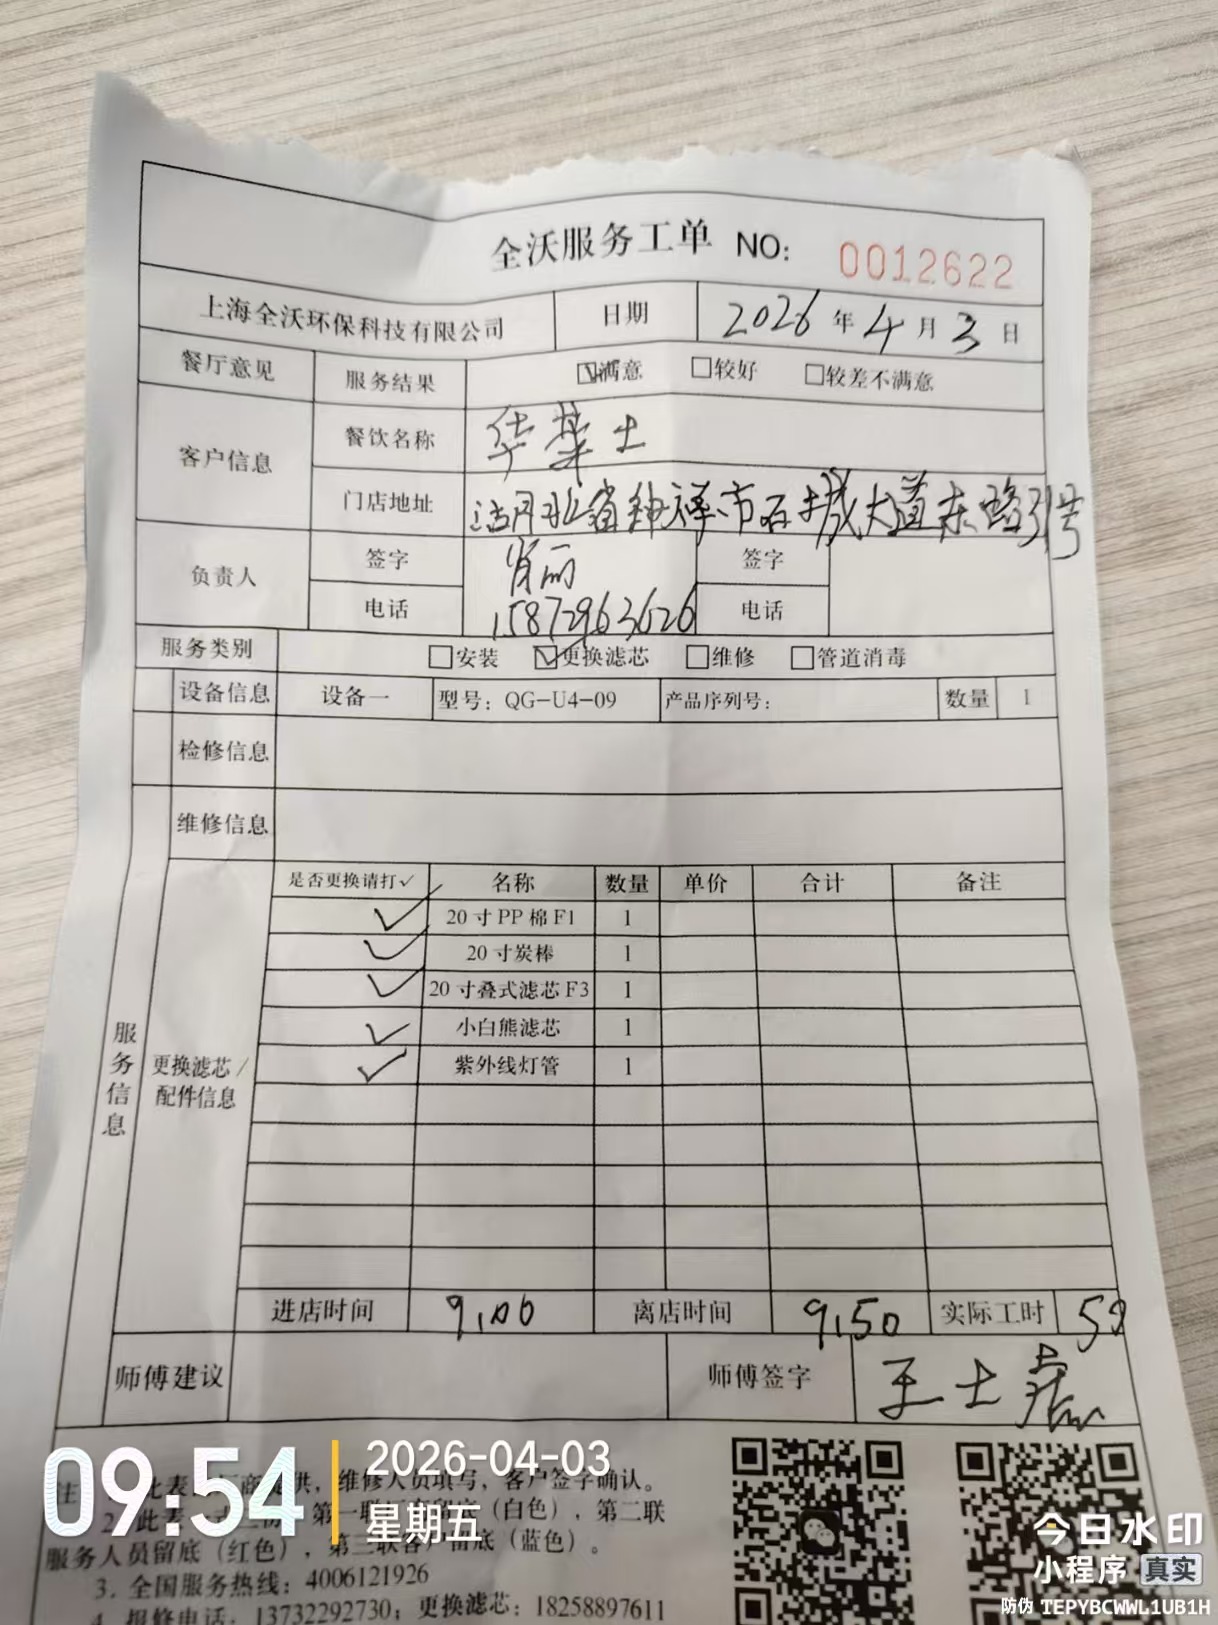 全沃服务工单 NO: 0012622
上海全沃环保科技有限公司 日期 2026年4月3日
餐厅意见 服务结果 ☑满意 □较好 □较差不满意
客户信息 餐饮名称 华莱士
门店地址 湖北省钟祥市石城大道东路31号
负责人 签字 肖丽 签字
电话 15872963626 电话
服务类别 □安装 ☑更换滤芯 □维修 □管道消毒
设备信息 设备一 型号：QG-U4-09 产品序列号： 数量 1
检修信息
维修信息
服务信息
更换滤芯/配件信息
是否更换请打✓ 名称 数量 单价 合计 备注
✓ 20寸PP棉F1 1
✓ 20寸炭棒 1
✓ 20寸叠式滤芯F3 1
✓ 小白熊滤芯 1
✓ 紫外线灯管 1
进店时间 9,00 离店时间 9,50 实际工时 50
师傅建议 师傅签字 王士
注 此表 供，维修人员填写，客户签字确认。
2. 此表一式三份，第一联 留底（白色），第二联
服务人员留底（红色），第三联客户留底（蓝色）。
3. 全国服务热线：4006121926
4. 报修电话：13732292730；更换滤芯：18258897611
09:54
2026-04-03
星期五
今日水印
小程序 真实
防伪 TEPYBCWWL1UB1H